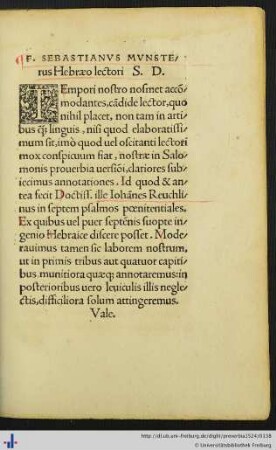 F. SEBASTIANVS MVNSTE/
rus Hebræo lectori S. D.
TEmpori nostro nosmet accõ
modantes, cãdide lector, quo
nihil placet, non tam in arti
bus q̃ʒ linguis, nisi quod elaboratissi
mum sit, imò quod uel oscitanti lectori
mox conspicuum fiat, nostræ in Salo
monis prouerbia uersiõi, clariores sub/
iecimus annotationes. Id quod & an
tea fecit Doctiss. ille Iohãnes Reuchli/
nus in septem psalmos pœnitentiales.
Ex quibus uel puer septẽnis suopte in
genio Hebraice discere posset. Mode/
rauimus tamen sic laborem nostrum,
ut in primis tribus aut quatuor capiti/
bus munitiora quæqʒ annotaremus: in
posterioribus uero leuiculis illis negle/
ctis, difficiliora solum attingeremus.
Vale.
http://dl.ub.uni-freiburg.de/diglit/proverbia1524/0158
© Universitätsbibliothek Freiburg